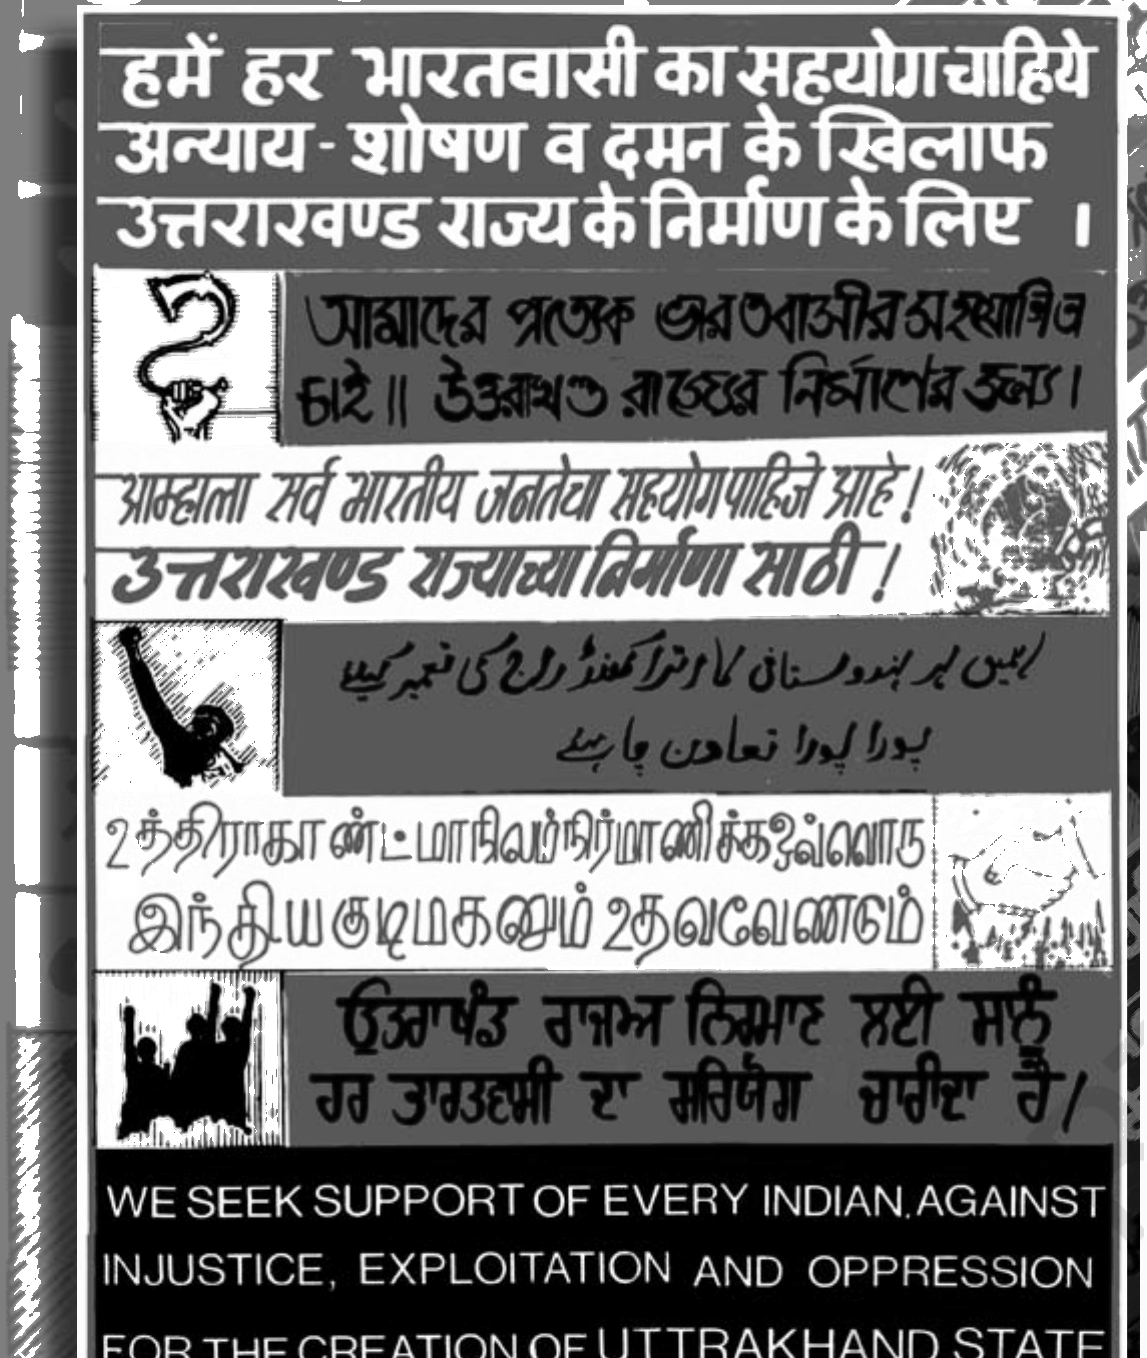 हमें हर भारतवासी का सहयोग चाहिये
अन्याय - शोषण व दमन के खिलाफ
उत्तराखण्ड राज्य के निर्माण के लिए ।
আমাদের প্রত্যেক ভারতবাসীর সহযোগিতা
চাই ॥ উত্তরাখণ্ড রাজ্যের নির্মাণের জন্য ।
आम्हाला सर्व भारतीय जनतेचा सहयोग पाहिजे आहे !
उत्तराखण्ड राज्याच्या निर्माणा साठी !
ہمیں ہر ہندوستانی کا اترا کھنڈ راج کی تعمیر کیلئے
پورا پورا تعاون چاہیے
உத்திராகாண்ட் மாநிலம் நிர்மாணிக்க ஒவ்வொரு
இந்திய குடிமகனும் உதவவேண்டும்
ਉਤਰਾਖੰਡ ਰਾਜਅ ਨਿਰਮਾਣ ਲਈ ਸਾਨੂੰ
ਹਰ ਭਾਰਤਵਾਸੀ ਦਾ ਸਹਿਯੋਗ ਚਾਹੀਦਾ ਹੈ /
WE SEEK SUPPORT OF EVERY INDIAN, AGAINST
INJUSTICE, EXPLOITATION AND OPPRESSION
FOR THE CREATION OF UTTRAKHAND STATE